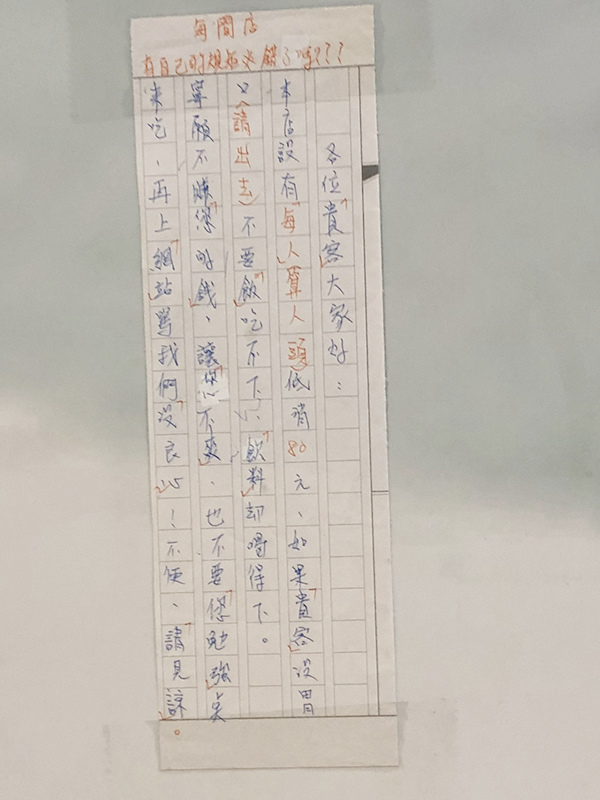 每間店
有自己的規矩錯了嗎???
各位「貴客」大家好:
本店設有「每人算人頭」低消80元、如果「貴客」没胃
口「請出去」不要「飯」吃不下、「飲料」却喝得下。
寧願不賺「您的錢」、讓「您不爽」、也不要「您勉強」
來吃、再上「網站」罵我們「没良心」!不便、「請見諒」。